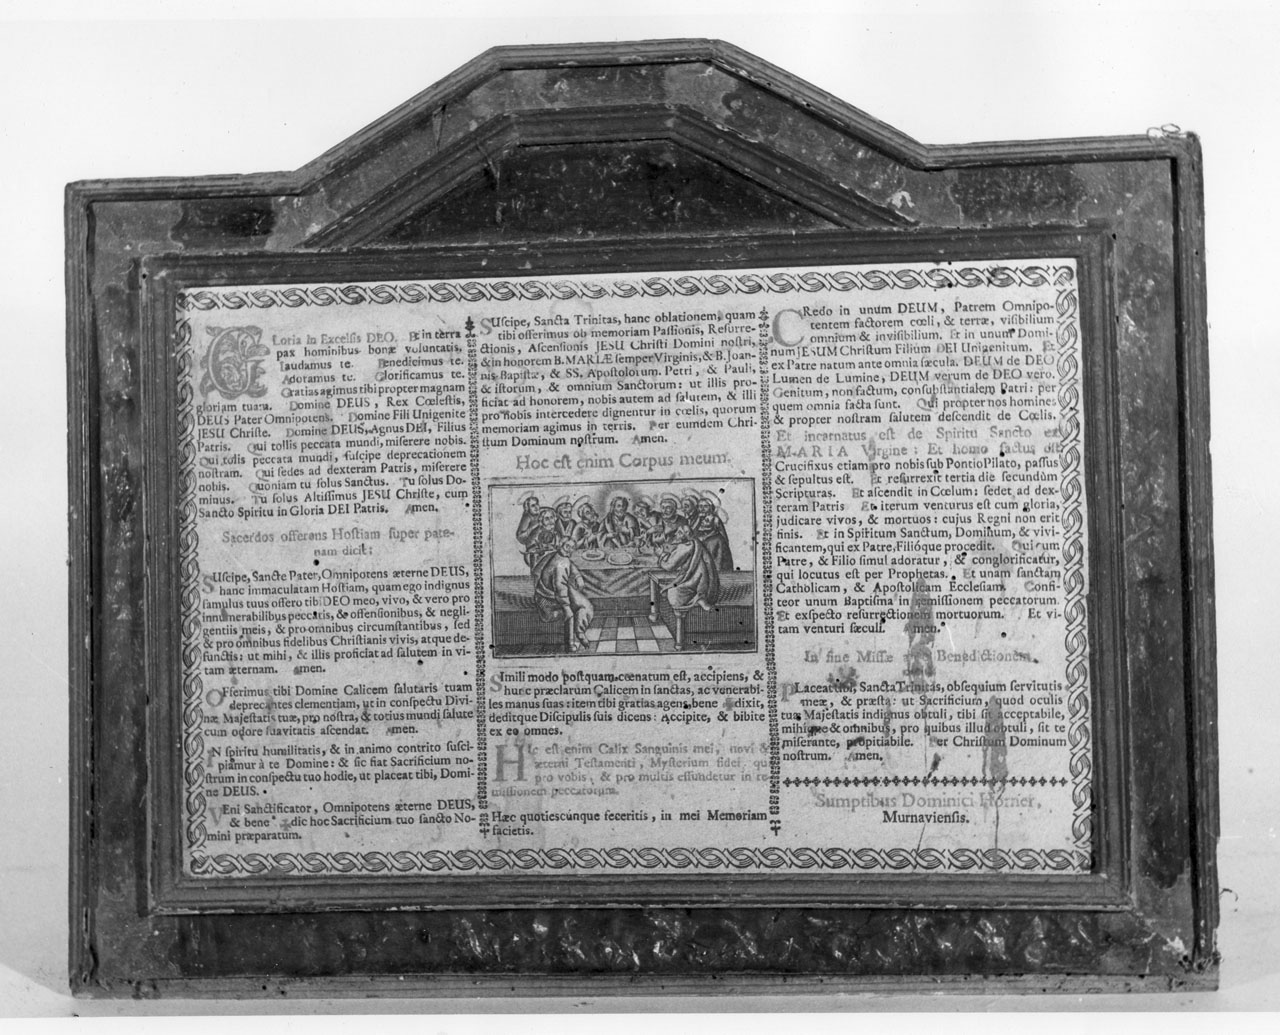 GLoria in Excelsis DEO. Et in terra
pax hominibus bonæ voluntatis.
Laudamus te. Benedicimus te.
Adoramus te. Glorificamus te.
Gratias agimus tibi propter magnam
gloriam tuam. Domine DEUS, Rex Cœlestis,
DEUS Pater Omnipotens. Domine Fili Unigenite
JESU Christe. Domine DEUS, Agnus DEI, Filius
Patris. Qui tollis peccata mundi, miserere nobis.
Qui tollis peccata mundi, suscipe deprecationem
nostram. Qui sedes ad dexteram Patris, miserere
nobis. Quoniam tu solus Sanctus. Tu solus Do-
minus. Tu solus Altissimus JESU Christe, cum
Sancto Spiritu in Gloria DEI Patris. Amen.
Sacerdos offerens Hostiam super pate-
nam dicit:
SUscipe, Sancte Pater, Omnipotens æterne DEUS,
hanc immaculatam Hostiam, quam ego indignus
famulus tuus offero tibi DEO meo, vivo, & vero pro
innumerabilibus peccatis, & offensionibus, & negli-
gentiis meis, & pro omnibus circumstantibus, sed
& pro omnibus fidelibus Christianis vivis, atque de-
functis: ut mihi, & illis proficiat ad salutem in vi-
tam æternam. Amen.
OFferimus tibi Domine Calicem salutaris tuam
deprecantes clementiam, ut in conspectu Divi-
næ Majestatis tuæ, pro nostra, & totius mundi salute
cum odore suavitatis ascendat. Amen.
IN spiritu humilitatis, & in animo contrito susci-
piamur à te Domine: & sic fiat Sacrificium no-
strum in conspectu tuo hodie, ut placeat tibi, Domi-
ne DEUS.
VEni Sanctificator, Omnipotens æterne DEUS,
& bene ✠ dic hoc Sacrificium tuo sancto No-
mini præparatum.
SUscipe, Sancta Trinitas, hanc oblationem, quam
tibi offerimus ob memoriam Passionis, Resurre-
ctionis, Ascensionis JESU Christi Domini nostri,
& in honorem B. MARIÆ semper Virginis, & B. Joan-
nis Baptistæ, & SS. Apostolorum. Petri, & Pauli,
& istorum, & omnium Sanctorum: ut illis pro-
ficiat ad honorem, nobis autem ad salutem, & illi
pro nobis intercedere dignentur in cœlis, quorum
memoriam agimus in terris. Per eumdem Chri-
stum Dominum nostrum. Amen.
Hoc est enim Corpus meum.
SImili modo postquam cœnatum est, accipiens, &
hunc præclarum Calicem in sanctas, ac venerabi-
les manus suas: item tibi gratias agens, bene ✠ dixit,
deditque Discipulis suis dicens: Accipite, & bibite
ex eo omnes.
HIc est enim Calix Sanguinis mei, novi &
æterni Testamenti, Mysterium fidei, qui
pro vobis, & pro multis effundetur in re-
missionem peccatorum.
Hæc quotiescunque feceritis, in mei Memoriam
facietis.
CRedo in unum DEUM, Patrem Omnipo-
tentem factorem cœli, & terræ, visibilium
omnium & invisibilium. Et in unum Domi-
num JESUM Christum Filium DEI Unigenitum. Et
ex Patre natum ante omnia sæcula. DEUM de DEO
Lumen de Lumine, DEUM verum de DEO vero.
Genitum, non factum, consubstantialem Patri: per
quem omnia facta sunt. Qui propter nos homines
& propter nostram salutem descendit de Cœlis.
Et incarnatus est de Spiritu Sancto ex
MARIA Virgine: Et homo factus est
Crucifixus etiam pro nobis sub Pontio Pilato, passus
& sepultus est. Et resurrexit tertia die secundùm
Scripturas. Et ascendit in Cœlum: sedet ad dex-
teram Patris Et iterum venturus est cum gloria,
judicare vivos, & mortuos: cujus Regni non erit
finis. Et in Spiritum Sanctum, Dominum, & vivi-
ficantem, qui ex Patre, Filióque procedit. Qui cum
Patre, & Filio simul adoratur, & conglorificatur,
qui locutus est per Prophetas. Et unam sanctam
Catholicam, & Apostolicam Ecclesiam. Confi-
teor unum Baptisma in remissionem peccatorum.
Et exspecto resurrectionem mortuorum. Et vi-
tam venturi sæculi. Amen.
In fine Missæ Benedictionem.
PLaceat tibi, Sancta Trinitas, obsequium servitutis
meæ, & præsta: ut Sacrificium, quod oculis
tuæ Majestatis indignus obtuli, tibi sit acceptabile,
mihique & omnibus, pro quibus illud obtuli, sit te
miserante, propitiabile. Per Christum Dominum
nostrum. Amen.
Sumptibus Dominici Horner,
Murnaviensis.